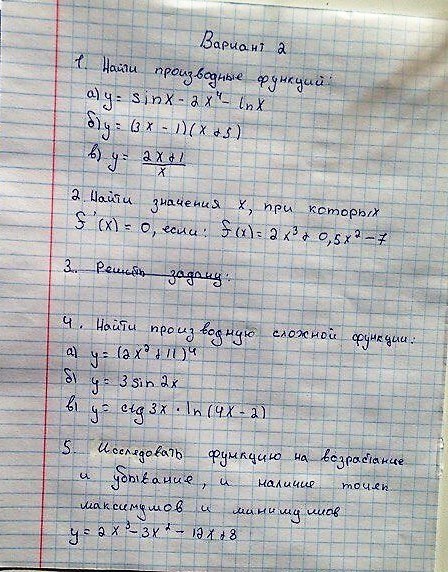 Вариант 2
1. Найти производные функций:
а) y = sinx - 2x⁴ - lnx
б) y = (3x - 1)(x + 5)
в) y = 2x+1/x
2. Найти значения x, при которых
f'(x) = 0, если: f(x) = 2x³ + 0,5x² - 7
3. Решить задачу:
4. Найти производную сложной функции:
а) y = (2x² + 11)⁴
б) y = 3sin2x
в) y = ctg3x · ln(4x - 2)
5. Исследовать функцию на возрастание
и убывание, и наличие точек
максимумов и минимумов
y = 2x³ - 3x² - 12x + 8